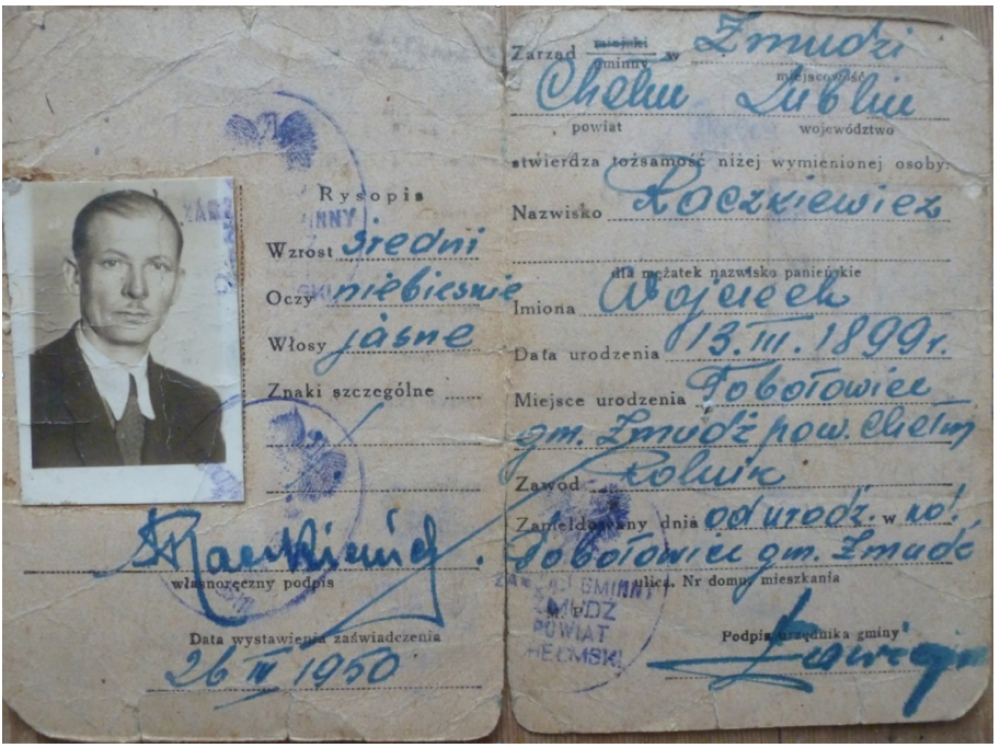 Rysopis
Wzrost średni
Oczy niebieskie
Włosy jasne
Znaki szczególne
Raczkiewicz
własnoręczny podpis
Data wystawienia zaświadczenia
26 III 1950
Zarząd miejski gminny w Żmudzi
miejscowość
Chełm Lublin
powiat województwo
stwierdza tożsamość niżej wymienionej osoby:
Nazwisko Raczkiewicz
dla mężatek nazwisko panieńskie
Imiona Wojciech
Data urodzenia 13. III. 1899 r.
Miejsce urodzenia Pobołowice
gm. Żmudź pow. Chełm
Zawód Rolnik
Zameldowany dnia od urodz. w kol.
Pobołowice gm. Żmudź
ulica, Nr domu, mieszkania
M. P.
ZARZĄD GMINNY
ŻMUDŹ
POWIAT
CHEŁMSKI
Podpis urzędnika gminy